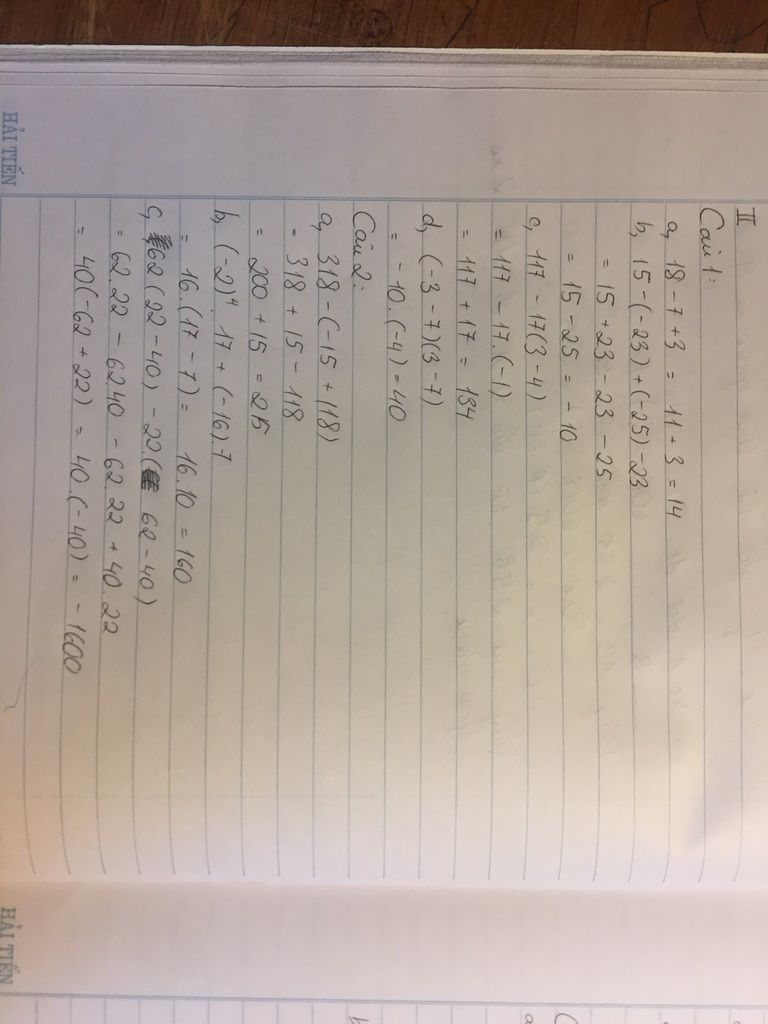 II
Câu 1:
a, 18 - 7 + 3 = 11 + 3 = 14
b, 15 - (-23) + (-25) - 23
= 15 + 23 - 23 - 25
= 15 - 25 = - 10
c, 117 - 17(3 - 4)
= 117 - 17.(-1)
= 117 + 17 = 134
d, (-3 - 7)(3 - 7)
= - 10.(-4) = 40
Câu 2:
a, 318 - (-15 + 118)
= 318 + 15 - 118
= 200 + 15 = 215
b, (-2)⁴. 17 + (-16).7
= 16.(17 - 7) = 16.10 = 160
c, 62(22 - 40) - 22.( 62 - 40)
= 62.22 - 62.40 - 62.22 + 40.22
= 40(-62 + 22) = 40.(-40) = - 1600
HẢI TIẾN
HẢI TIẾN